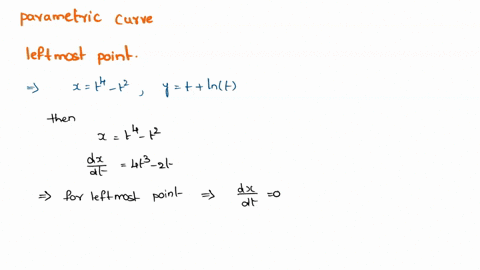 parametric curve
leftmost point.
⇒ x = t⁴ - t² , y = t + ln(t)
then
x = t⁴ - t²
dx/dt = 4t³ - 2t
⇒ for leftmost point ⇒ dx/dt = 0